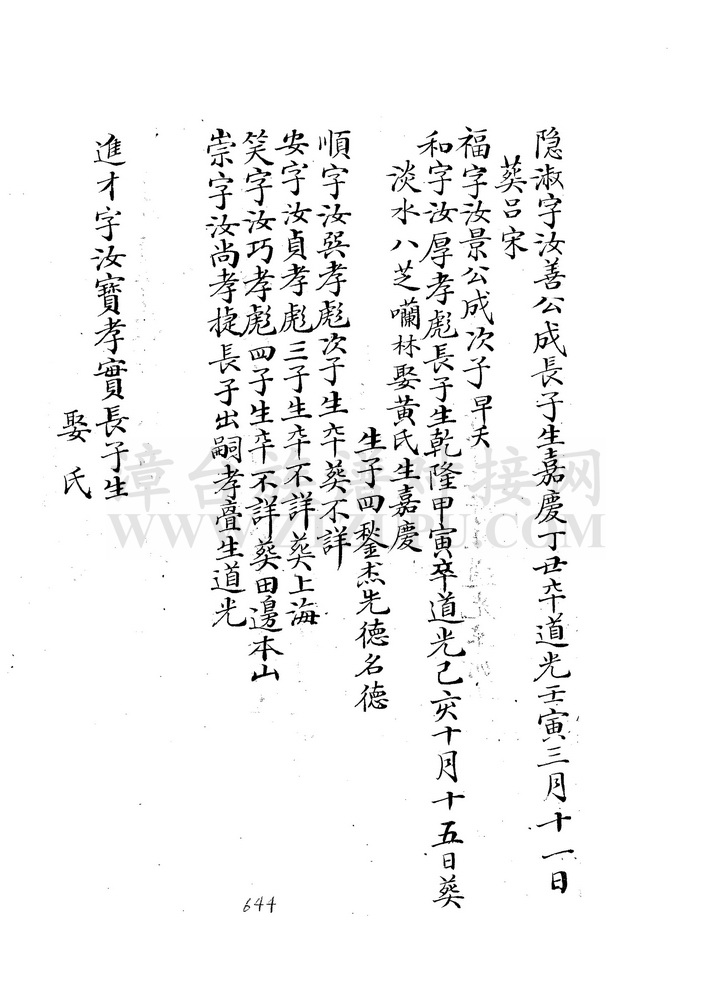 隐淑字汝善公成長子生嘉慶丁丑卒道光壬寅三月十一日
葬呂宋
福字汝景公成次子早夭
和字汝厚孝彪長子生乾隆甲寅卒道光己亥十月十五日葬
淡水八芝嚹林娶黃氏生嘉慶
生子四鏊杰先德名德
順字汝巽孝彪次子生卒葬不詳
安字汝貞孝彪三子生卒不詳葬上海
笑字汝巧孝彪四子生卒不詳葬田邊本山
崇字汝尚孝捷長子出嗣孝亹生道光
進才字汝寶孝實長子生
娶氏
644
章台族譜對接网
WWW.ZTZUPU.COM